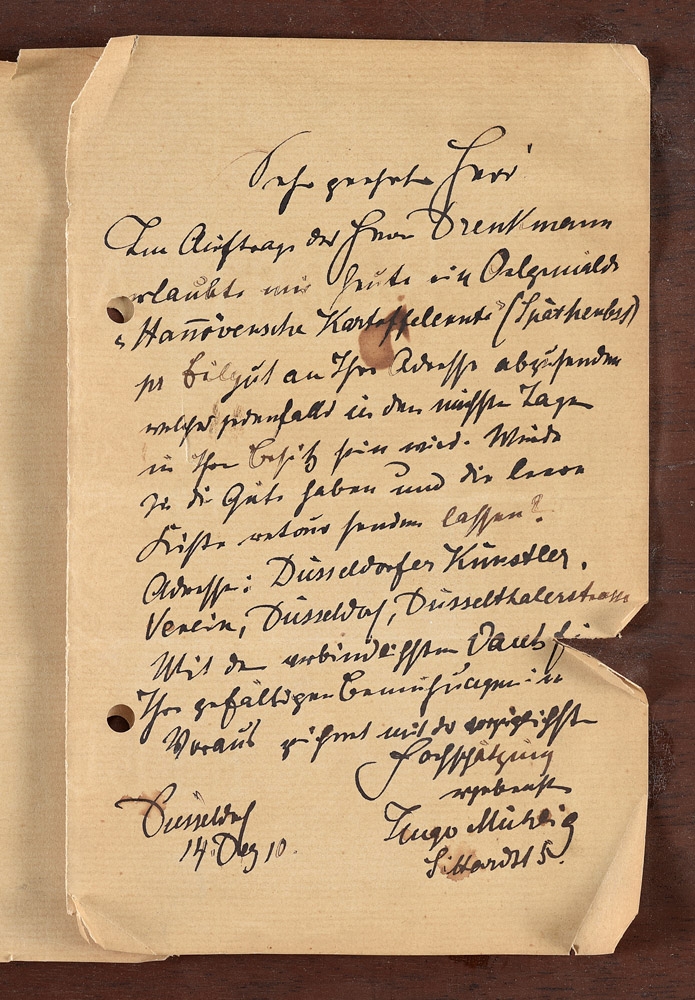 Sehr geehrter Herr
Im Auftrage des Herrn Drenkmann
erlaubte mir heute ein Oelgemälde
"Hannöversche Kartoffelernte" (Spätherbst)
per Eilgut an Ihre Adresse abzusenden
welches jedenfalls in den nächsten Tagen
in Ihrem Besitz sein wird. Würden
Sie die Güte haben und die leere
Kiste retour senden lassen?
Adresse: Düsseldorfer Künstler
Verein, Düsseldorf, Düsselthalerstrasse
Mit dem verbindlichsten Dank für
Ihre gefälligen Bemühungen im
Voraus zeichnet mit der vorzüglichsten
Hochschätzung
ergebenst
Hugo Mühlig
Düsseldorf
14. Dez 10.
Sittardst 5.